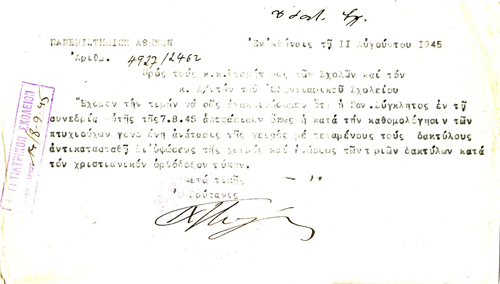 ΠΑΝΕΠΙΣΤΗΜΙΟΝ ΑΘΗΝΩΝ
Ἐν Ἀθήναις τῇ 11 Αὐγούστου 1945
Ἀριθμ. 4927/2462
Πρός τούς κ.κ. τῶν Σχολῶν καί τόν
κ. Δ/ντήν τοῦ Ὀδοντιατρικοῦ Σχολείου
Ἔχομεν τήν τιμήν νά σᾶς ἀνακοινώσωμεν ὅτι ἡ Παν.Σύγκλητος ἐν τῇ
συνεδρίᾳ αὐτῆς τῆς 7.8.45 ἀπεφάσισεν ὅπως ἡ κατά τήν καθομολόγησιν τῶν
πτυχιούχων γενομένη ἀνάτασις τῆς χειρός μέ τεταμένους τούς δακτύλους
ἀντικατασταθῇ δι' ὑψώσεως τῆς χειρός καί ἑνώσεως τῶν τριῶν δακτύλων κατά
τόν χριστιανικόν ὀρθόδοξον τύπον.
Μετά τιμῆς
Ὁ Πρύτανις
ΟΔΟΝΤΙΑΤΡΙΚΟΝ ΣΧΟΛΕΙΟΝ
18-9-45